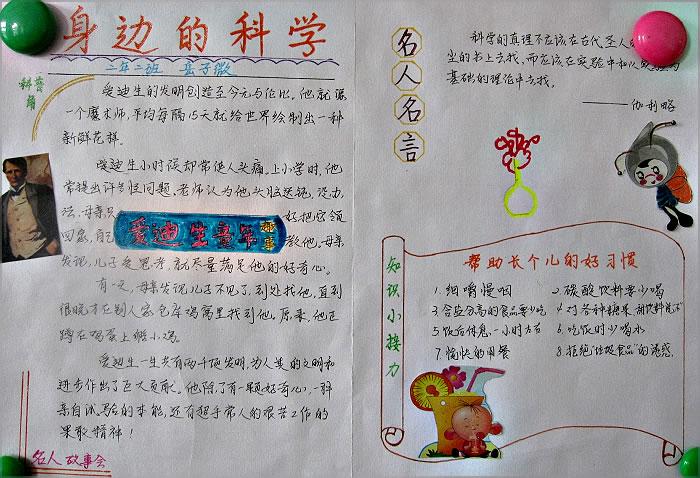 身边的科学
二年二班 岳子微
科普角
爱迪生的发明创造至今无与伦比。他就像
一个魔术师,平均每隔15天就给世界绘制出一种
新鲜花样。
爱迪生小时候却常使人头痛。上小学时,他
常提出许多怪问题,老师认为他
法,母亲只好把它领
回家,自己教他。母亲
发现,儿子爱思考,就尽量满足他的好奇心。
爱迪生童年
趣事
有一天,母亲发现儿子不见了,到处找他,直到
很晚才在别人家仓库鸡窝里找到他。原来,他正
蹲在鸡蛋上孵小鸡。
爱迪生一生共有两千项发明,为人类的文明和
进步作出了巨大贡献。他除了有一颗好奇心,一种
亲自试验的本能,还有超乎常人的艰苦工作的
果敢精神!
名人故事会
名人名言
科学的真理不应该在古代圣人
的书上去找,而应该在实验中和以
基础的理论中去找。
——伽利略
知识小接力
帮助长个儿的好习惯
1.细嚼慢咽
2.碳酸饮料要少喝
3.含盐分高的食品要少吃
4.对各种糖果、甜饮料说"不"
5.饭后休息,一小时左右
6.吃饭时少喝水
7.愉快的用餐
8.拒绝"垃圾食品"的诱惑.